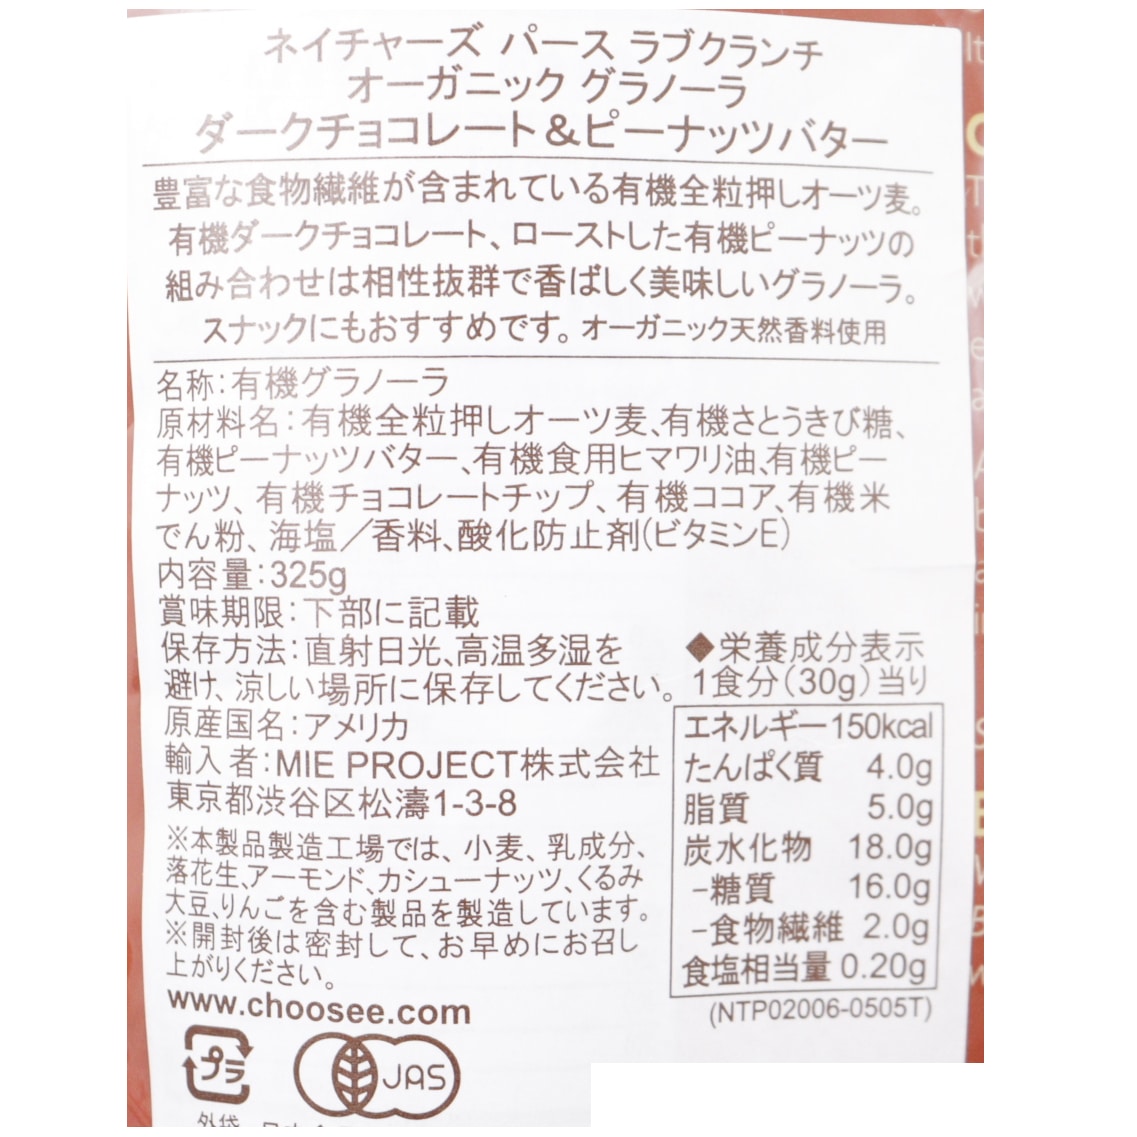 ネイチャーズ パース ラブクランチ
オーガニック グラノーラ
ダークチョコレート&ピーナッツバター
豊富な食物繊維が含まれている有機全粒押しオーツ麦。
有機ダークチョコレート、ローストした有機ピーナッツの
組み合わせは相性抜群で香ばしく美味しいグラノーラ。
スナックにもおすすめです。オーガニック天然香料使用
名称:有機グラノーラ
原材料名:有機全粒押しオーツ麦、有機さとうきび糖、
有機ピーナッツバター、有機食用ヒマワリ油、有機ピー
ナッツ、有機チョコレートチップ、有機ココア、有機米
でん粉、海塩／香料、酸化防止剤(ビタミンE)
内容量:325g
賞味期限:下部に記載
保存方法:直射日光、高温多湿を
避け、涼しい場所に保存してください。
原産国名:アメリカ
輸入者:MIE PROJECT株式会社
東京都渋谷区松濤1-3-8
※本製品製造工場では、小麦、乳成分、
落花生、アーモンド、カシューナッツ、くるみ
大豆、りんごを含む製品を製造しています。
※開封後は密封して、お早めにお召し
上がりください。
www.choosee.com
◆栄養成分表示
1食分(30g)当り
エネルギー150kcal
たんぱく質 4.0g
脂質 5.0g
炭水化物 18.0g
-糖質 16.0g
-食物繊維 2.0g
食塩相当量 0.20g
(NTP02006-0505T)
プラ
JAS
外袋